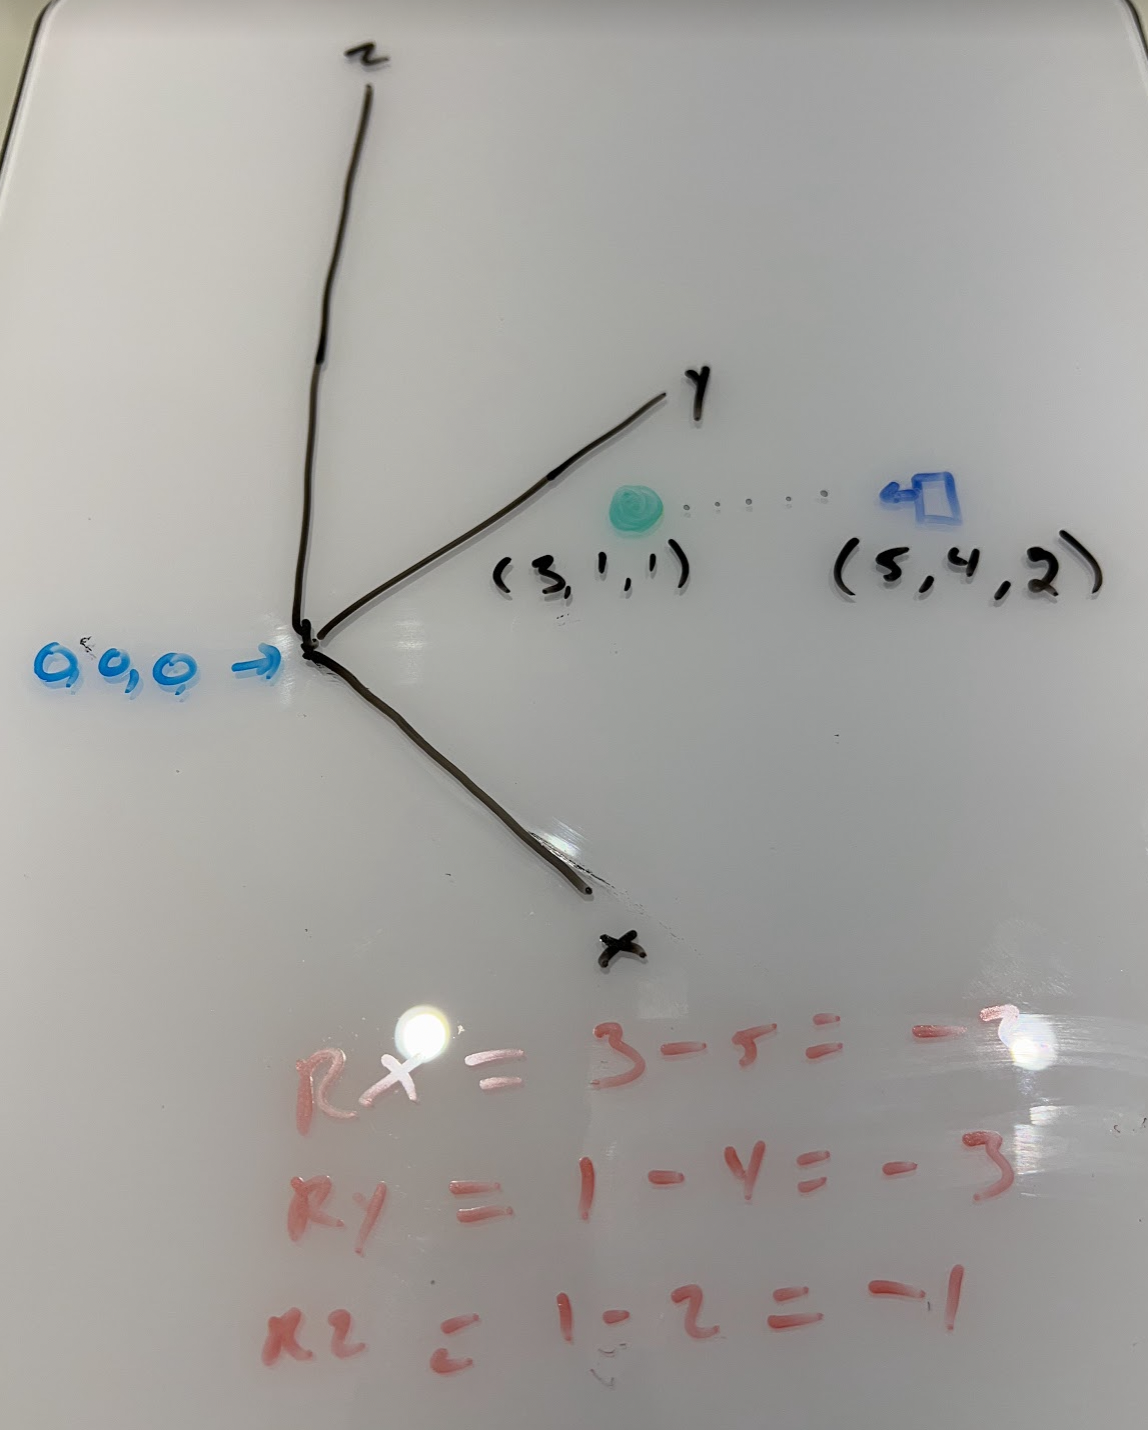 z
y
(3,1,1)
(5,4,2)
0,0,0 →
x
Rx = 3 - 5 = -2
Ry = 1 - 4 = - 3
Rz = 1 - 2 = -1